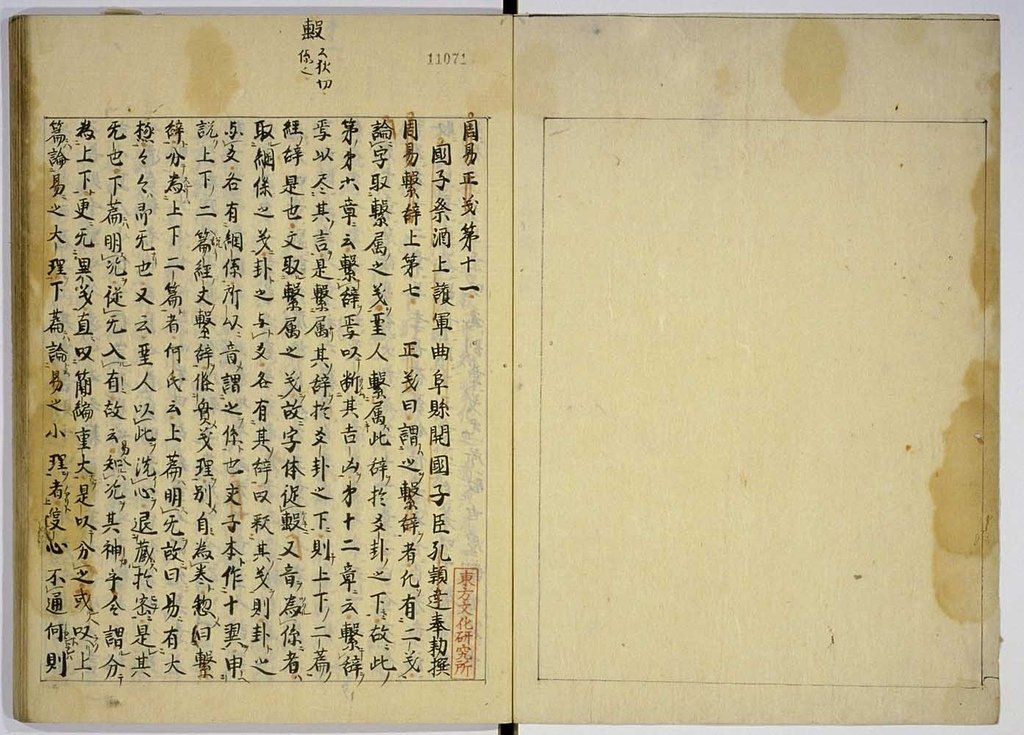 11071
毄
係也
周易正義第十一
國子祭酒上護軍曲阜縣開國子臣孔穎達奉勅撰
周易繫辞上第七 正義曰謂之繫辞者凡有二義
論字取繫属之義聖人繫属此辞於爻卦之下故此
第六章云繫辞焉以断其吉凶第十二章云繫辞
焉以尽其言是繫属其辞於爻卦之下則上下二篇
經辞是也文取繫属之義故字体從毄又音為係者
取綱係之義卦之与爻各有其辞以釈其義則卦之
与爻各有綱係所以音謂之係也夫子本作十翼申
説上下二篇經文繫辞條貫義理別自為巻惣曰繫
辞分為上下二篇者何氏云上篇明无故曰易有大
極々々即无也又云聖人以此洗心退蔵於密是其
无也下篇明㡬從无入有故云知㡬其神乎今謂分
為上下更无異義直以簡編重大是以分之或以上
篇論易之大理下篇論易之小理者必不通何則
東方文化研究所